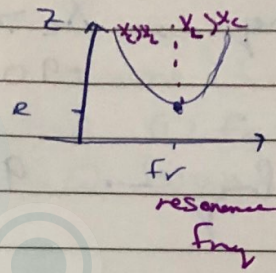 Z
Xc>XL XL>Xc
R
fr
resonance
freq